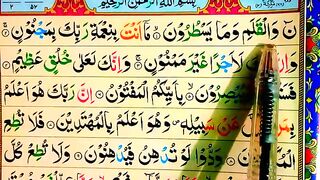 بِسْمِ اللّٰهِ الرَّحْمٰنِ الرَّحِيْمِ
نٓ وَالْقَلَمِ وَمَا يَسْطُرُوْنَ ۙ مَآ اَنْتَ بِنِعْمَةِ رَبِّكَ بِمَجْنُوْنٍ ۚ
وَاِنَّ لَاَجْرًا غَيْرَ مَمْنُوْنٍ ۚ وَاِنَّكَ لَعَلٰى خُلُقٍ عَظِيْمٍ
وَيُبْصِرُوْنَ ۙ بِاَىِّكُمُ الْمَفْتُوْنُ اِنَّ رَبَّكَ هُوَ اَعْلَمُ
بِمَنْ عَنْ سَبِيْلِهٖ وَهُوَ اَعْلَمُ بِالْمُهْتَدِيْنَ فَلَا تُطِعِ
الْمُكَذِّبِيْنَ وَدُّوْا لَوْ تُدْهِنُ فَيُدْهِنُوْنَ وَلَا تُطِعْ كُلَّ